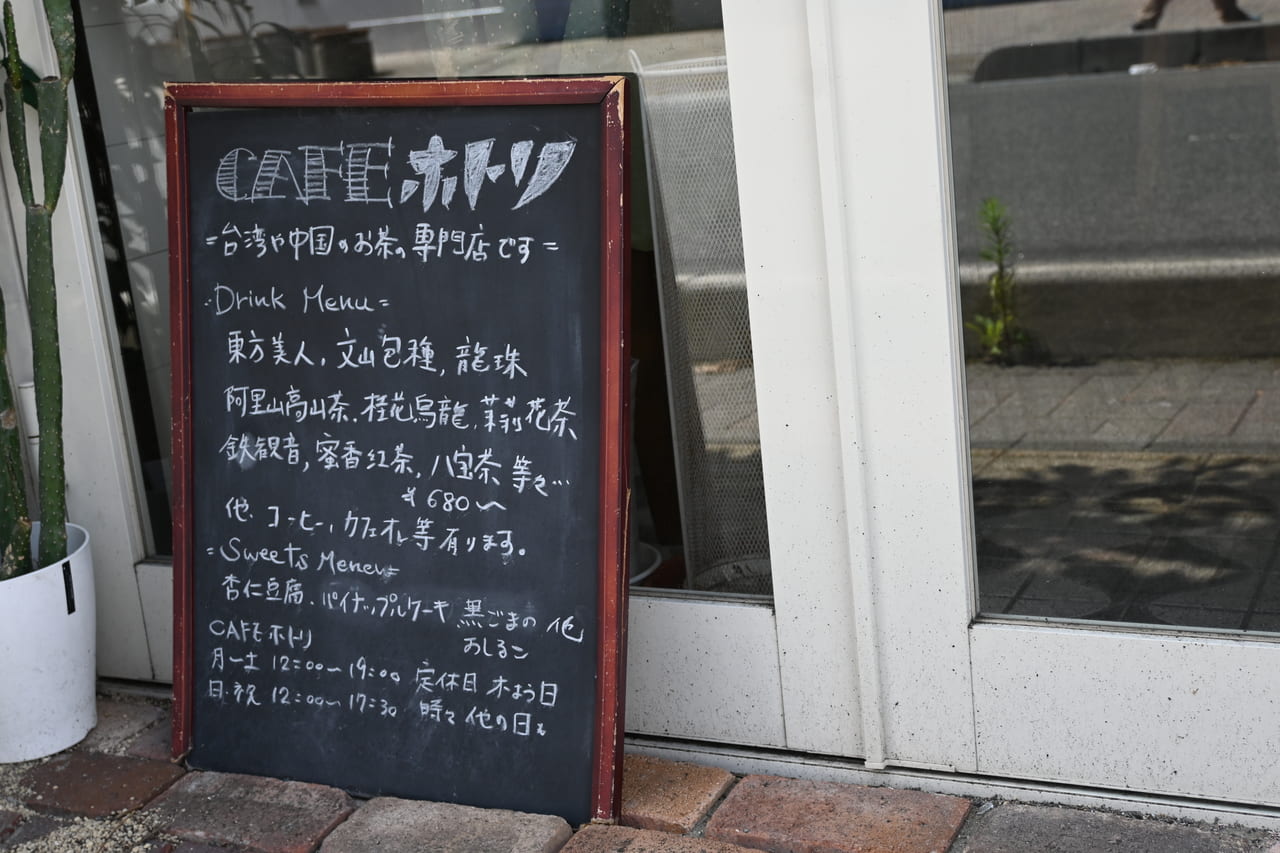 CAFE ホトリ
=台湾や中国のお茶の専門店です=
:Drink Menu=
東方美人, 文山包種, 龍珠
阿里山高山茶, 桂花烏龍, 茉莉花茶
鉄観音, 蜜香紅茶, 八宝茶 等々…
¥680〜
他. コーヒー, カフェオレ等有ります。
=Sweets Menu=
杏仁豆腐. パイナップルケーキ 黒ごまの 他
おしるこ
CAFEホトリ
月ー土 12:00〜19:00 定休日 木よう日
日・祝 12:00〜17:30 時々他の日も